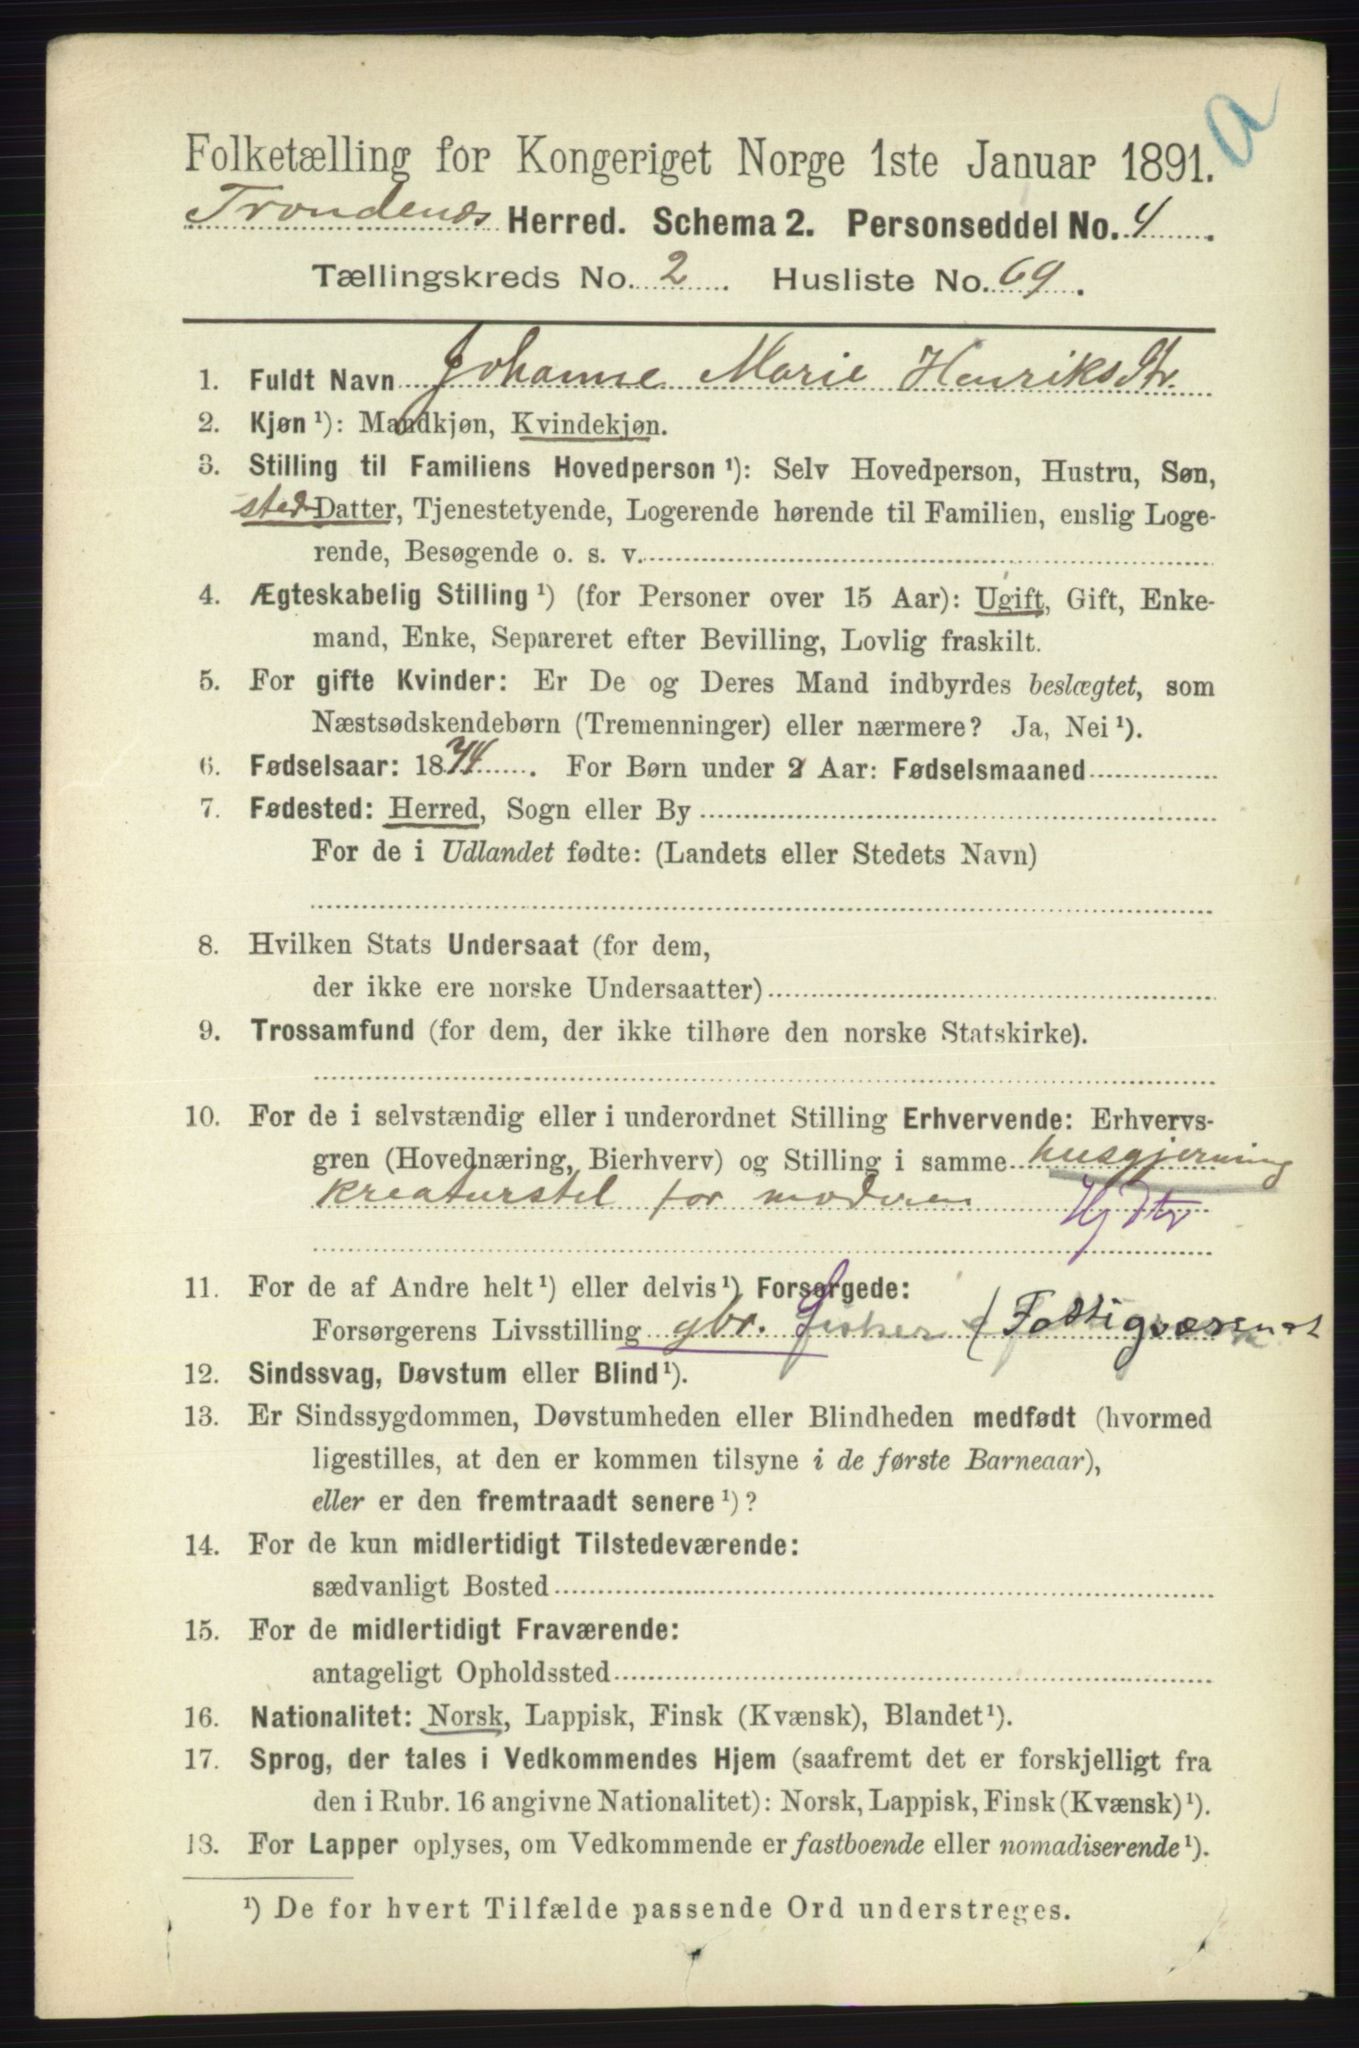 a
Folketælling for Kongeriget Norge 1ste Januar 1891.
Trondenæs Herred. Schema 2. Personseddel No. 4.
Tællingskreds No. 2. Husliste No. 69.
1. Fuldt Navn Johanne Marie Henriksdtr.
2. Kjøn ¹): Mandkjøn, Kvindekjøn.
3. Stilling til Familiens Hovedperson ¹): Selv Hovedperson, Hustru, Søn,
sted Datter, Tjenestetyende, Logerende hørende til Familien, enslig Loge-
rende, Besøgende o. s. v.
4. Ægteskabelig Stilling ¹) (for Personer over 15 Aar): Ugift, Gift, Enke-
mand, Enke, Separeret efter Bevilling, Lovlig fraskilt.
5. For gifte Kvinder: Er De og Deres Mand indbyrdes beslægtet, som
Næstsødskendebørn (Tremenninger) eller nærmere? Ja, Nei ¹).
6. Fødselsaar: 1874. For Børn under 2 Aar: Fødselsmaaned
7. Fødested: Herred, Sogn eller By
For de i Udlandet fødte: (Landets eller Stedets Navn)
8. Hvilken Stats Undersaat (for dem,
der ikke ere norske Undersaatter)
9. Trossamfund (for dem, der ikke tilhøre den norske Statskirke).
10. For de i selvstændig eller i underordnet Stilling Erhvervende: Erhvervs-
gren (Hovednæring, Bierhverv) og Stilling i samme husgjerning
kreaturstel for moderen Hj Dtr
11. For de af Andre helt ¹) eller delvis ¹) Forsørgede:
Forsørgerens Livsstilling gbr. fisker (Fattigvæsenet
12. Sindssvag, Døvstum eller Blind ¹).
13. Er Sindssygdommen, Døvstumheden eller Blindheden medfødt (hvormed
ligestilles, at den er kommen tilsyne i de første Barneaar),
eller er den fremtraadt senere ¹)?
14. For de kun midlertidigt Tilstedeværende:
sædvanligt Bosted
15. For de midlertidigt Fraværende:
antageligt Opholdssted
16. Nationalitet: Norsk, Lappisk, Finsk (Kvænsk), Blandet ¹).
17. Sprog, der tales i Vedkommendes Hjem (saafremt det er forskjelligt fra
den i Rubr. 16 angivne Nationalitet): Norsk, Lappisk, Finsk (Kvænsk) ¹).
13. For Lapper oplyses, om Vedkommende er fastboende eller nomadiserende ¹).
¹) De for hvert Tilfælde passende Ord understreges.